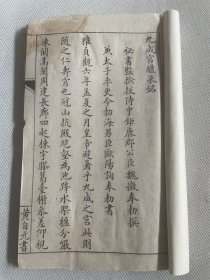 九成宮醴泉銘
祕書監檢挍侍中鉅鹿郡公臣魏徵奉勅撰
兼太子率更令勃海男臣歐陽詢奉勅書
維貞觀六年孟夏之月皇帝避暑乎九成之宮此則
隨之仁壽宮也冠山抗殿絕壑為池跨水架楹分巖
竦闕高閣周建長廊四起棟宇膠葛臺榭參差仰視
黃自元書